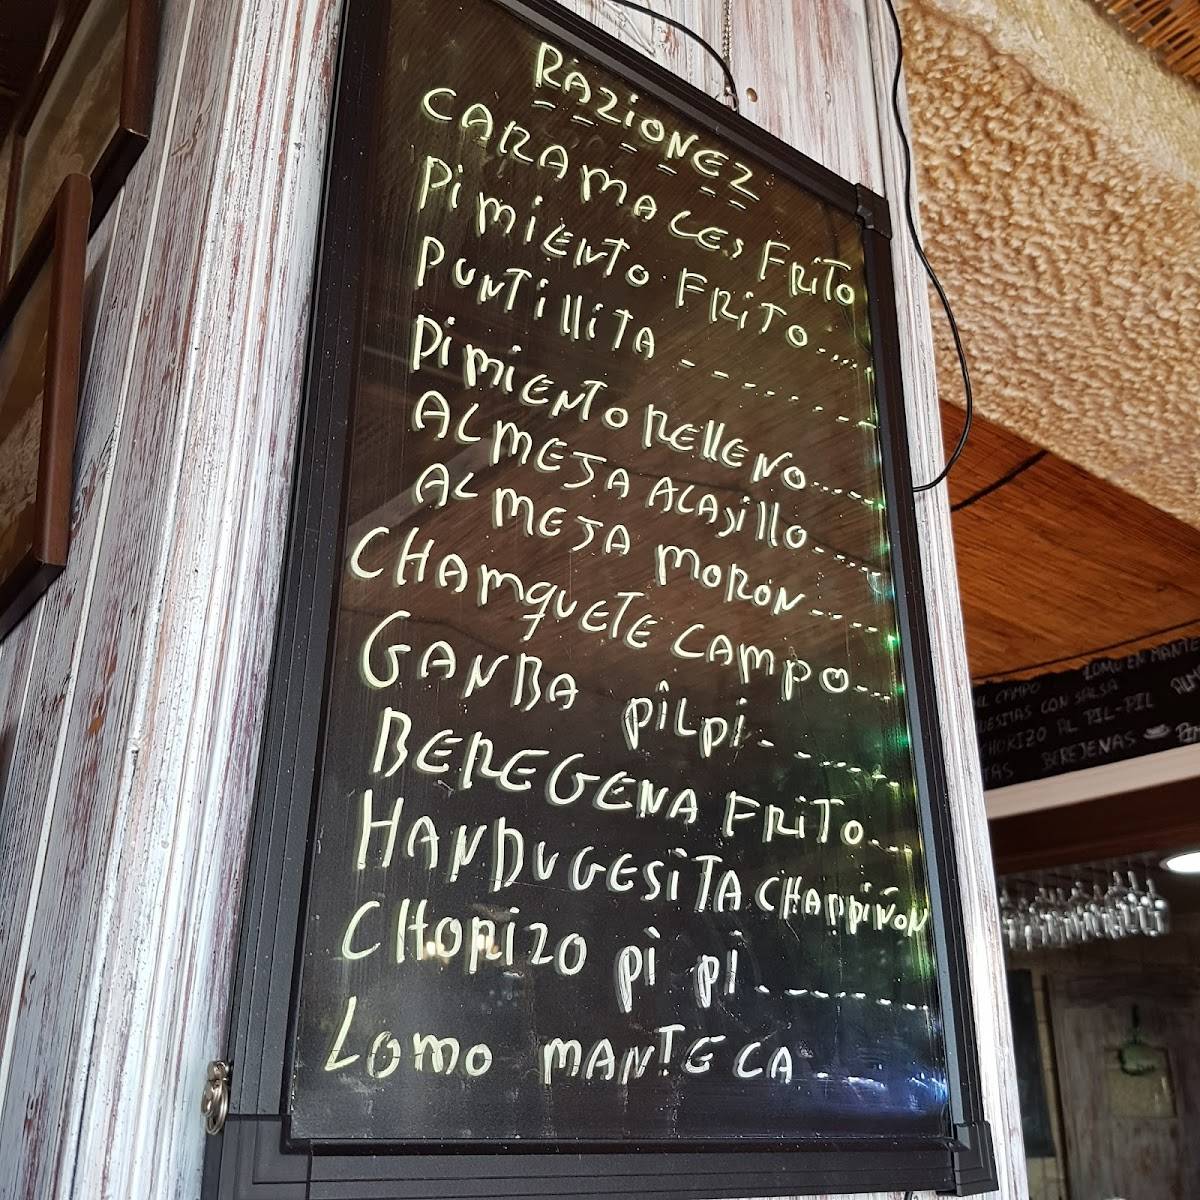 RAZIONEZ
CARAMACES FRITO
PIMIENTO FRITO.....
PUNTILLITA - - - - - - - -
PIMIENTO RELLENO.....
ALMEJA ALAJILLO.....
ALMEJA MORON.....
CHAMQUETE CAMPO...
GANBA PILPI- - - - -
BEREGENA FRITO...
HANDUGESITA CHANPIÑON
CHORIZO PI PI.- - - - - - -
LOMO MANTECA
CAMPO LOMO EN MANTE
CON SALSA ALM
CHORIZO AL PIL-PIL
BEREJENAS